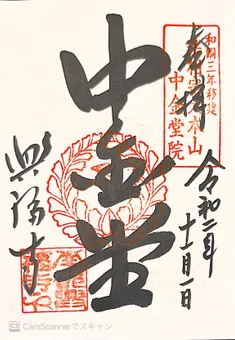 奉拝
和銅三年移建
中金堂院
令和二年
十一月一日
中金堂
興福寺
CS CamScannerでスキャン